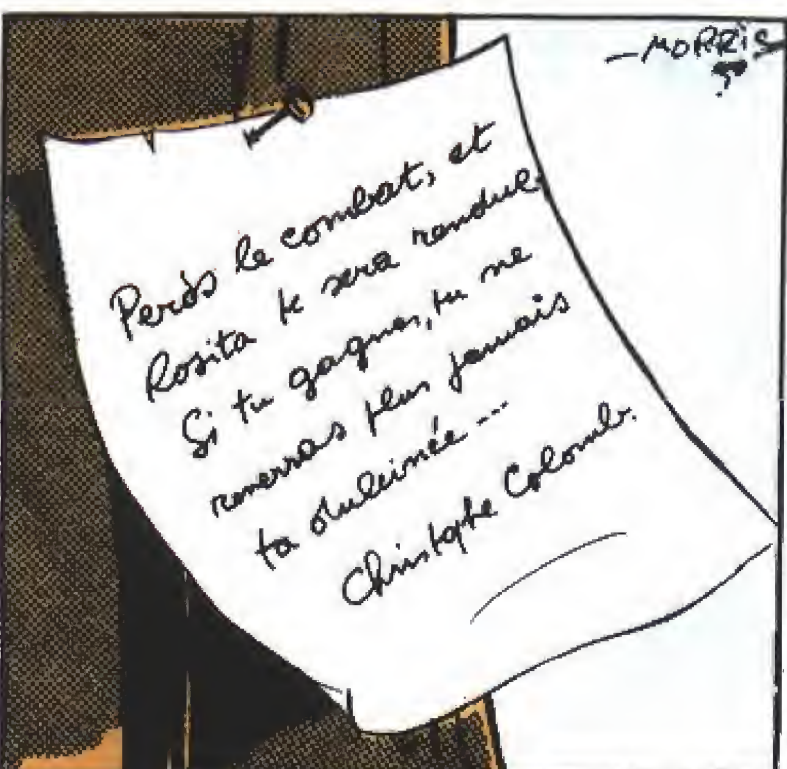 —MORRIS
Perds le combat, et
Rosita te sera rendue.
Si tu gagnes, tu ne
reverras plus jamais
ta dulcinée ...
Christophe Colomb.